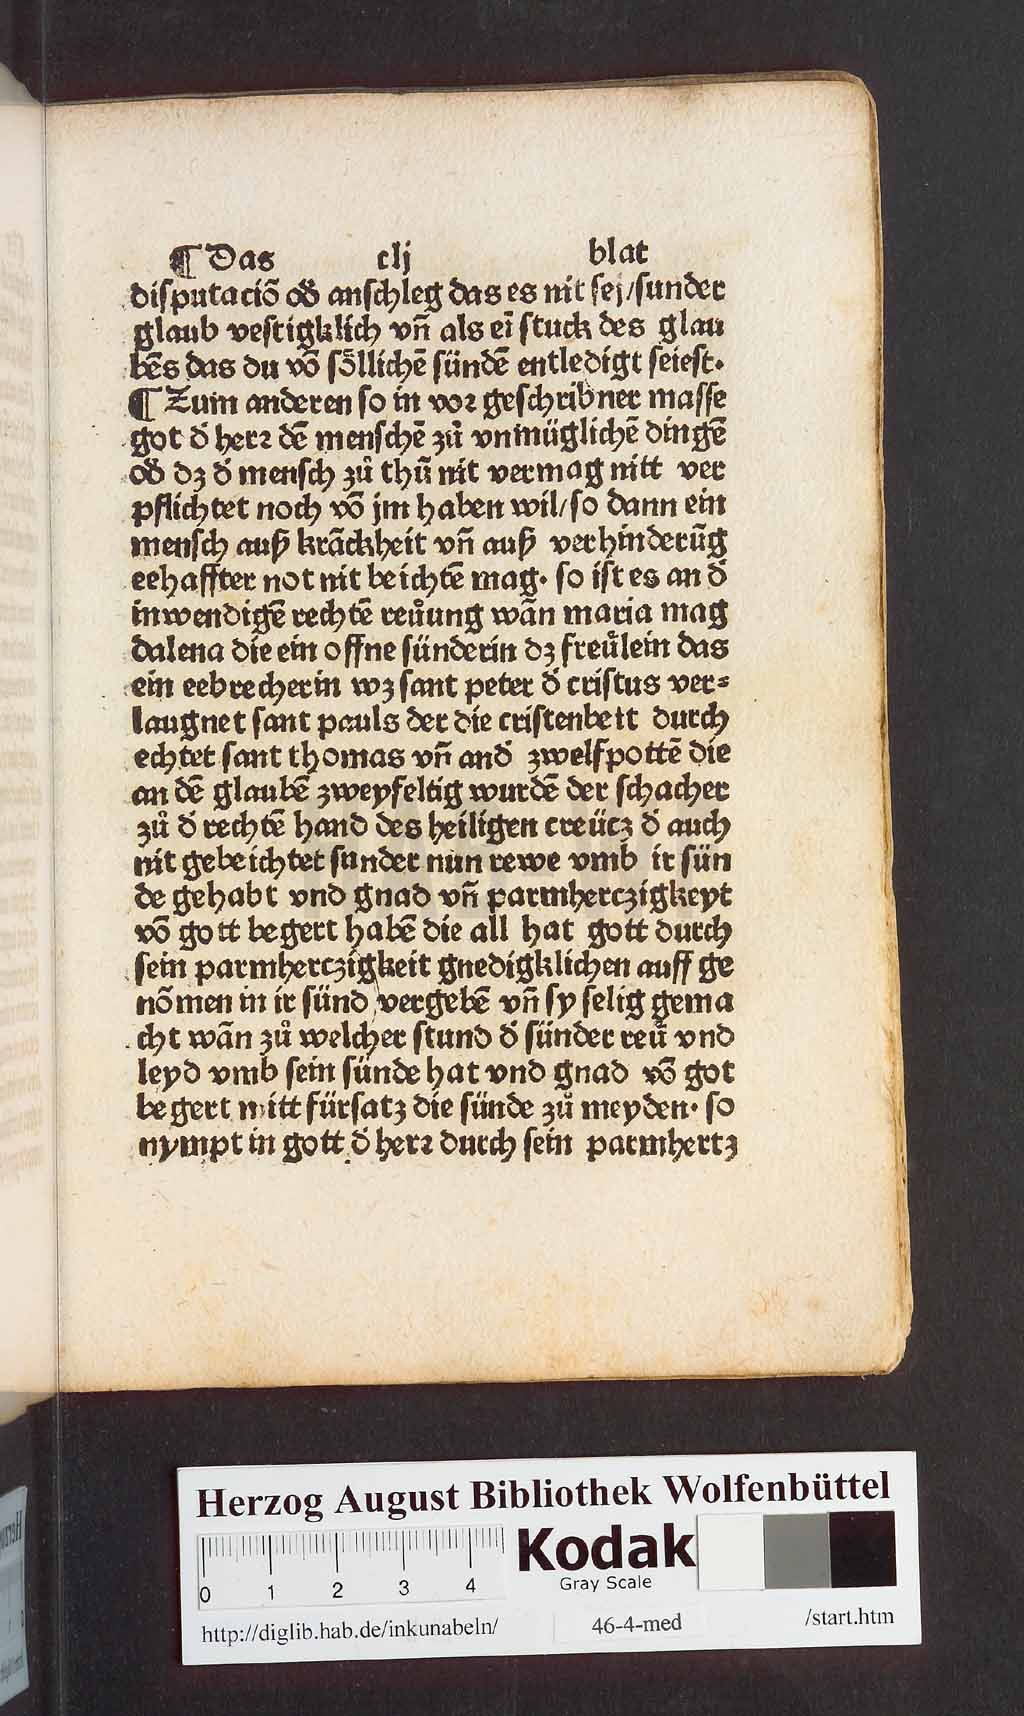 ¶ Das clj blat
disputaciō od̄ anschleg das es nit sej/sunder
glaub vestigklich vn̄ als eī stuck des glau
bēs das du vō sȫllichē sündē entledigt seiest.
¶ Zum anderen so in vor geschribner masse
got d̄ herr dē menschē zů vnmüglichē dingē
od̄ dz d̄ mensch zů thūn nit vermag nitt ver
pflichtet noch vō jm haben wil/so dann ein
mensch auß krāckheit vn̄ auß verhinderūg
eehaffter not nit beichtē mag. so ist es an d̄
inwendigē rechtē reůung wān maria mag
dalena die ein offne sünderin dz freůlein das
ein eebrecherin wz sant peter d̄ cristus ver=
laugnet sant pauls der die cristenheit durch
echtet sant thomas vn̄ and̄ zwelfpottē die
an dē glaubē zweyfeltig wurdē der schacher
zů d̄ rechtē hand des heiligen creücz d̄ auch
nit gebeichtet sunder nun rewe vmb ir sün
de gehabt vnd gnad vn̄ parmherczigkeyt
vō gott begert habē die all hat gott durch
sein parmherczigkeit gnedigklichen auff ge
nōmen in ir sünd vergebē vn̄ sy selig gema
cht wān zů welcher stund d̄ sünder reů vnd
leyd vmb sein sünde hat vnd gnad vō got
begert mitt fürsatz die sünde zů meyden. so
nympt in gott d̄ herr durch sein parmhertz
Herzog August Bibliothek Wolfenbüttel
0 1 2 3 4
Kodak
Gray Scale
http://diglib.hab.de/inkunabeln/ 46-4-med /start.htm